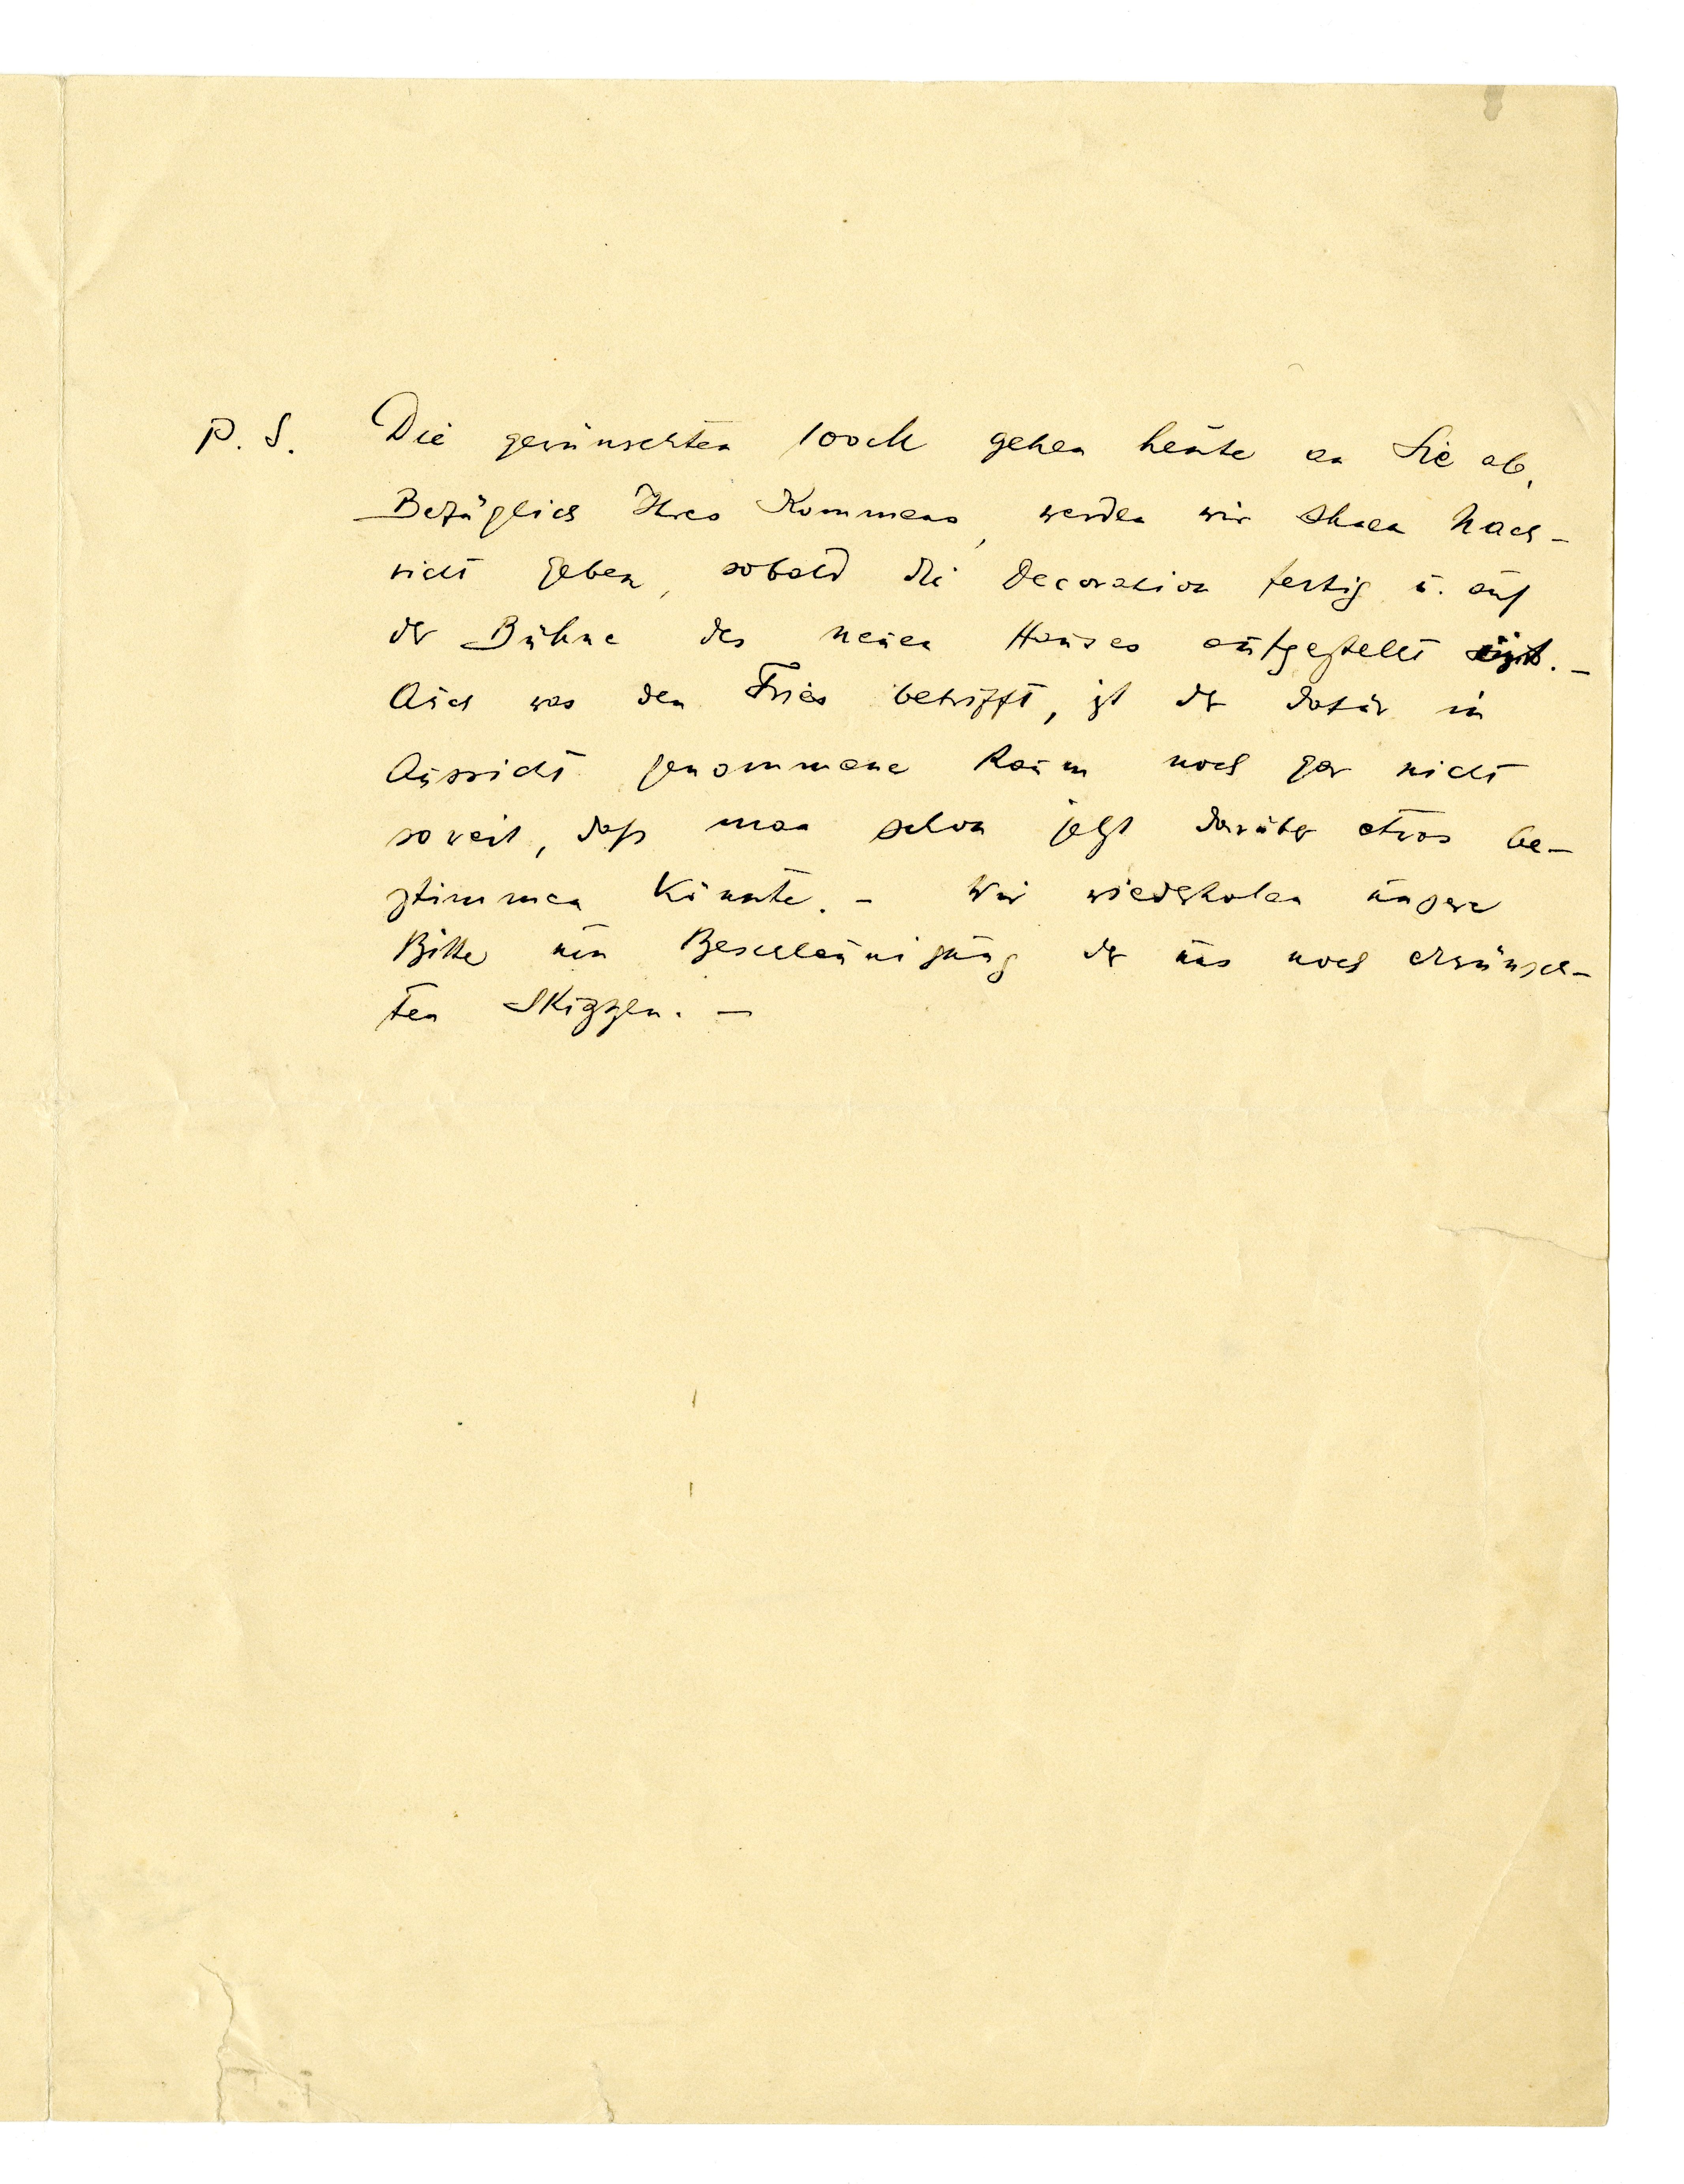 P. S. Die gewünschten 100 M gehen heute an Sie ab.
Bezüglich Ihres Kommens, werden wir Ihnen Nach-
richt geben, sobald die Decoration fertig u. auf
der Bühne des neuen Hauses aufgestellt ist. –
Auch was den Fries betrifft, ist der dafür in
Aussicht genommene Raum noch gar nicht
soweit, dass man schon jetzt darüber etwas be-
stimmen könnte. – Wir wiederholen unsere
Bitte um Beschleunigung der uns noch erwünsch-
ten Skizzen. –